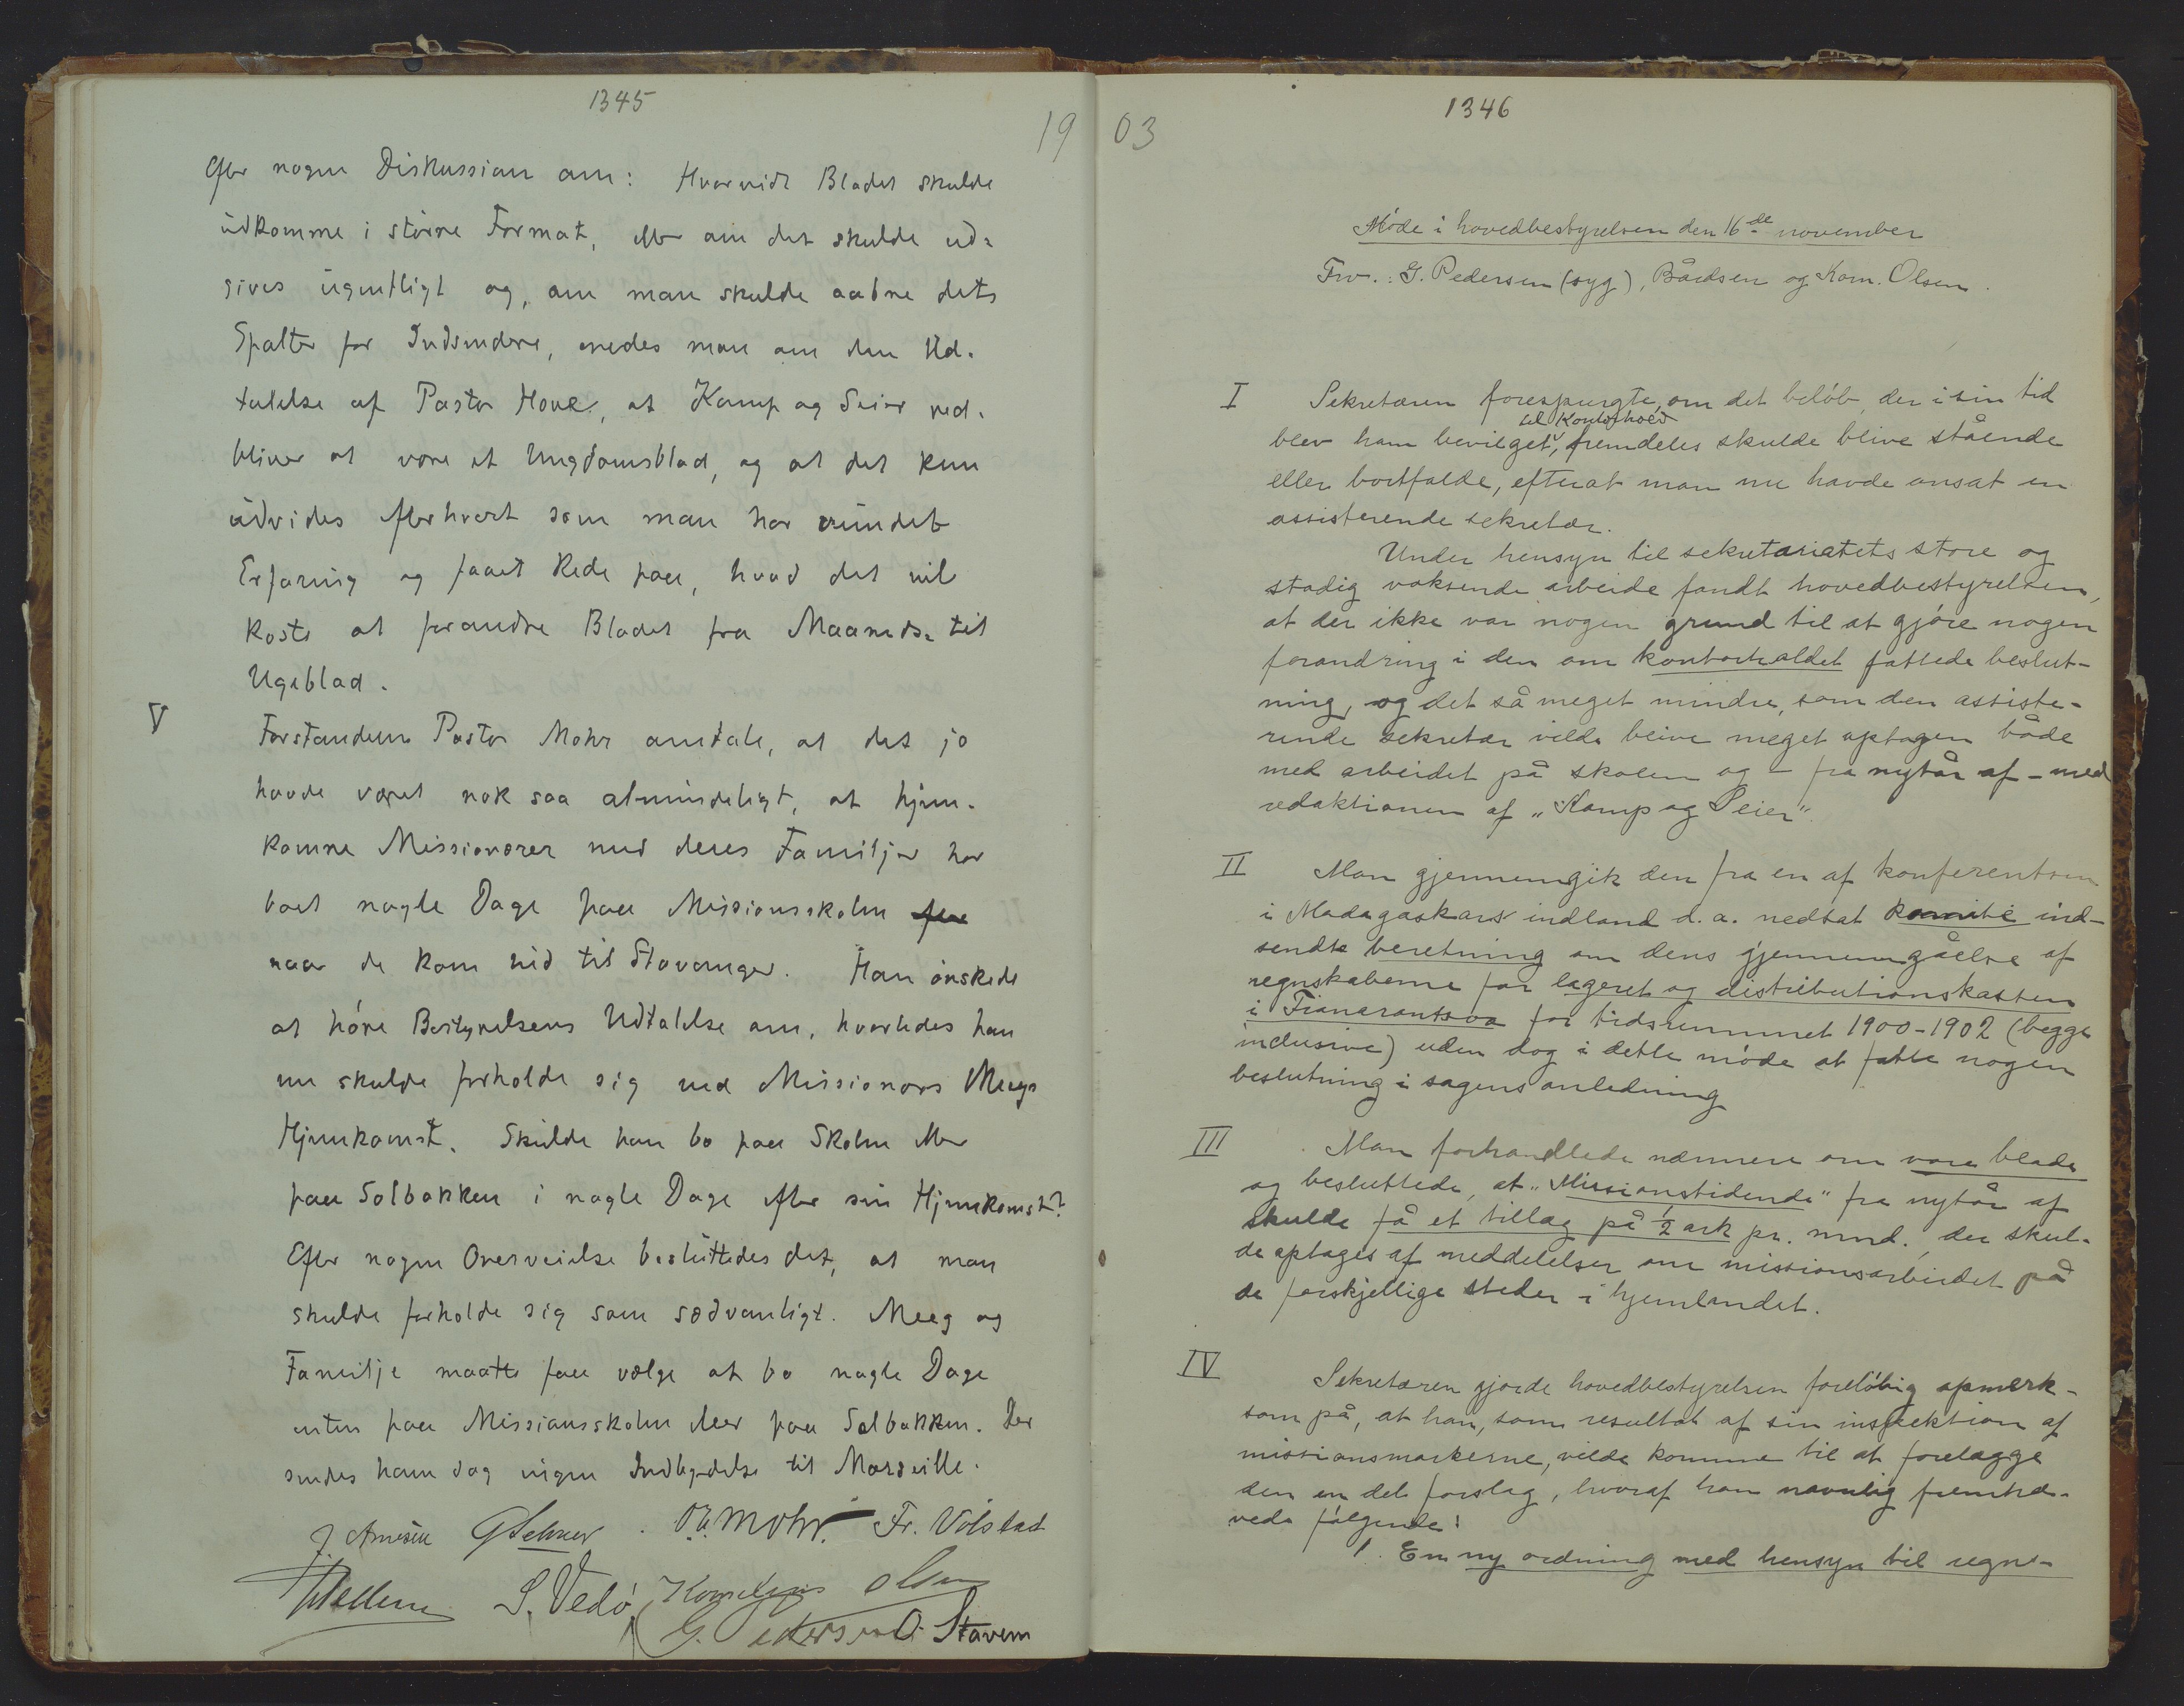 1345
19
Efter nogen Diskussion om: Hvorvidt Bladet skulde
udkomme i större Format, eller om det skulde ud-
gives ugentligt og, om man skulde aabne dets
Spalter for Indsendere, enedes man om den Ud-
talelse af Pastor Hove, at Kamp og Seier ved-
bliver at være et Ungdomsblad, og at det kun
udvides efterhvert som man har vundet
Erfaring og faaet Rede paa, hvad det vil
koste at forandre Bladet fra Maaneds- til
Ugeblad.
V
Forstanderen Pastor Mohr omtalte, at det jo
havde været nok saa almindeligt, at hjem-
komne Missionærer med deres Familjer har
boet nogle Dage paa Missionsskolen
naar de kom ind til Stavanger. Han önskede
at höre Bestyrelsens Udtalelse om, hvorledes han
nu skulde forholde sig ved Missionær Meegs
Hjemkomst. Skulde han bo paa Skolen eller
paa Solbakken i nogle Dage efter sin Hjemkomst?
Efter nogen Overveielse besluttedes det, at man
skulde forholde sig som sædvanligt. Meeg og
Familje maatte faa vælge at bo nogle Dage
enten paa Missionsskolen eller paa Solbakken. Der
sendes ham dog ingen Indbydelse til Marseille.
J. Arnesen
Mohr. Fr. Völstad
S. Vedö Kornelius Olsen
G. Pedersen O. Stavem
03
1346
Möde i hovedbestyrelsen den 16de november
Frv.: G. Pedersen (syg), Bårdsen og Korn. Olsen.
I Sekretæren forespurgte, om det belöb, der i sin tid
til Kontorhold
blev ham bevilget, fremdeles skulde blive stående
eller bortfalde, efterat man nu havde ansat en
assisterende sekretær.
Under hensyn til sekretariatets store og
stadig voksende arbeide fandt hovedbestyrelsen,
at der ikke var nogen grund til at gjöre nogen
forandring i den om kontorholdet fattede beslut-
ning, og det så meget mindre, som den assiste-
rende sekretær vilde blive meget optagen både
med arbeidet på skolen og - fra nytår af - med
redaktionen af "Kamp og Seier".
II Man gjennemgik den fra en af konferentsen
i Madagaskars indland d. a. nedsat komité ind-
sendte beretning om dens gjennemgåelse af
regnskaberne for lageret og distributionskassen
i Fianarantsoa for tidsrummet 1900-1902 (begge
inclusive) uden dog i dette möde at fatte nogen
beslutning i sagens anledning
III Man forhandlede nærmere om vore blade
og besluttede, at "Missionstidende" fra nytår af
skulde få et tillæg på ½ ark pr. mnd., der skul-
de optages af meddelelser om missionsarbeidet på
de forskjellige steder i hjemlandet.
IV Sekretæren gjorde hovedbestyrelsen forelöbig opmerk-
som på, at han, som resultat af sin inspektion af
missionsmarkerne, vilde komme til at forelægge
den en del forslag, hvoraf han navnlig fremhæ-
vede fölgende:
1. En ny ordning med hensyn til regn-